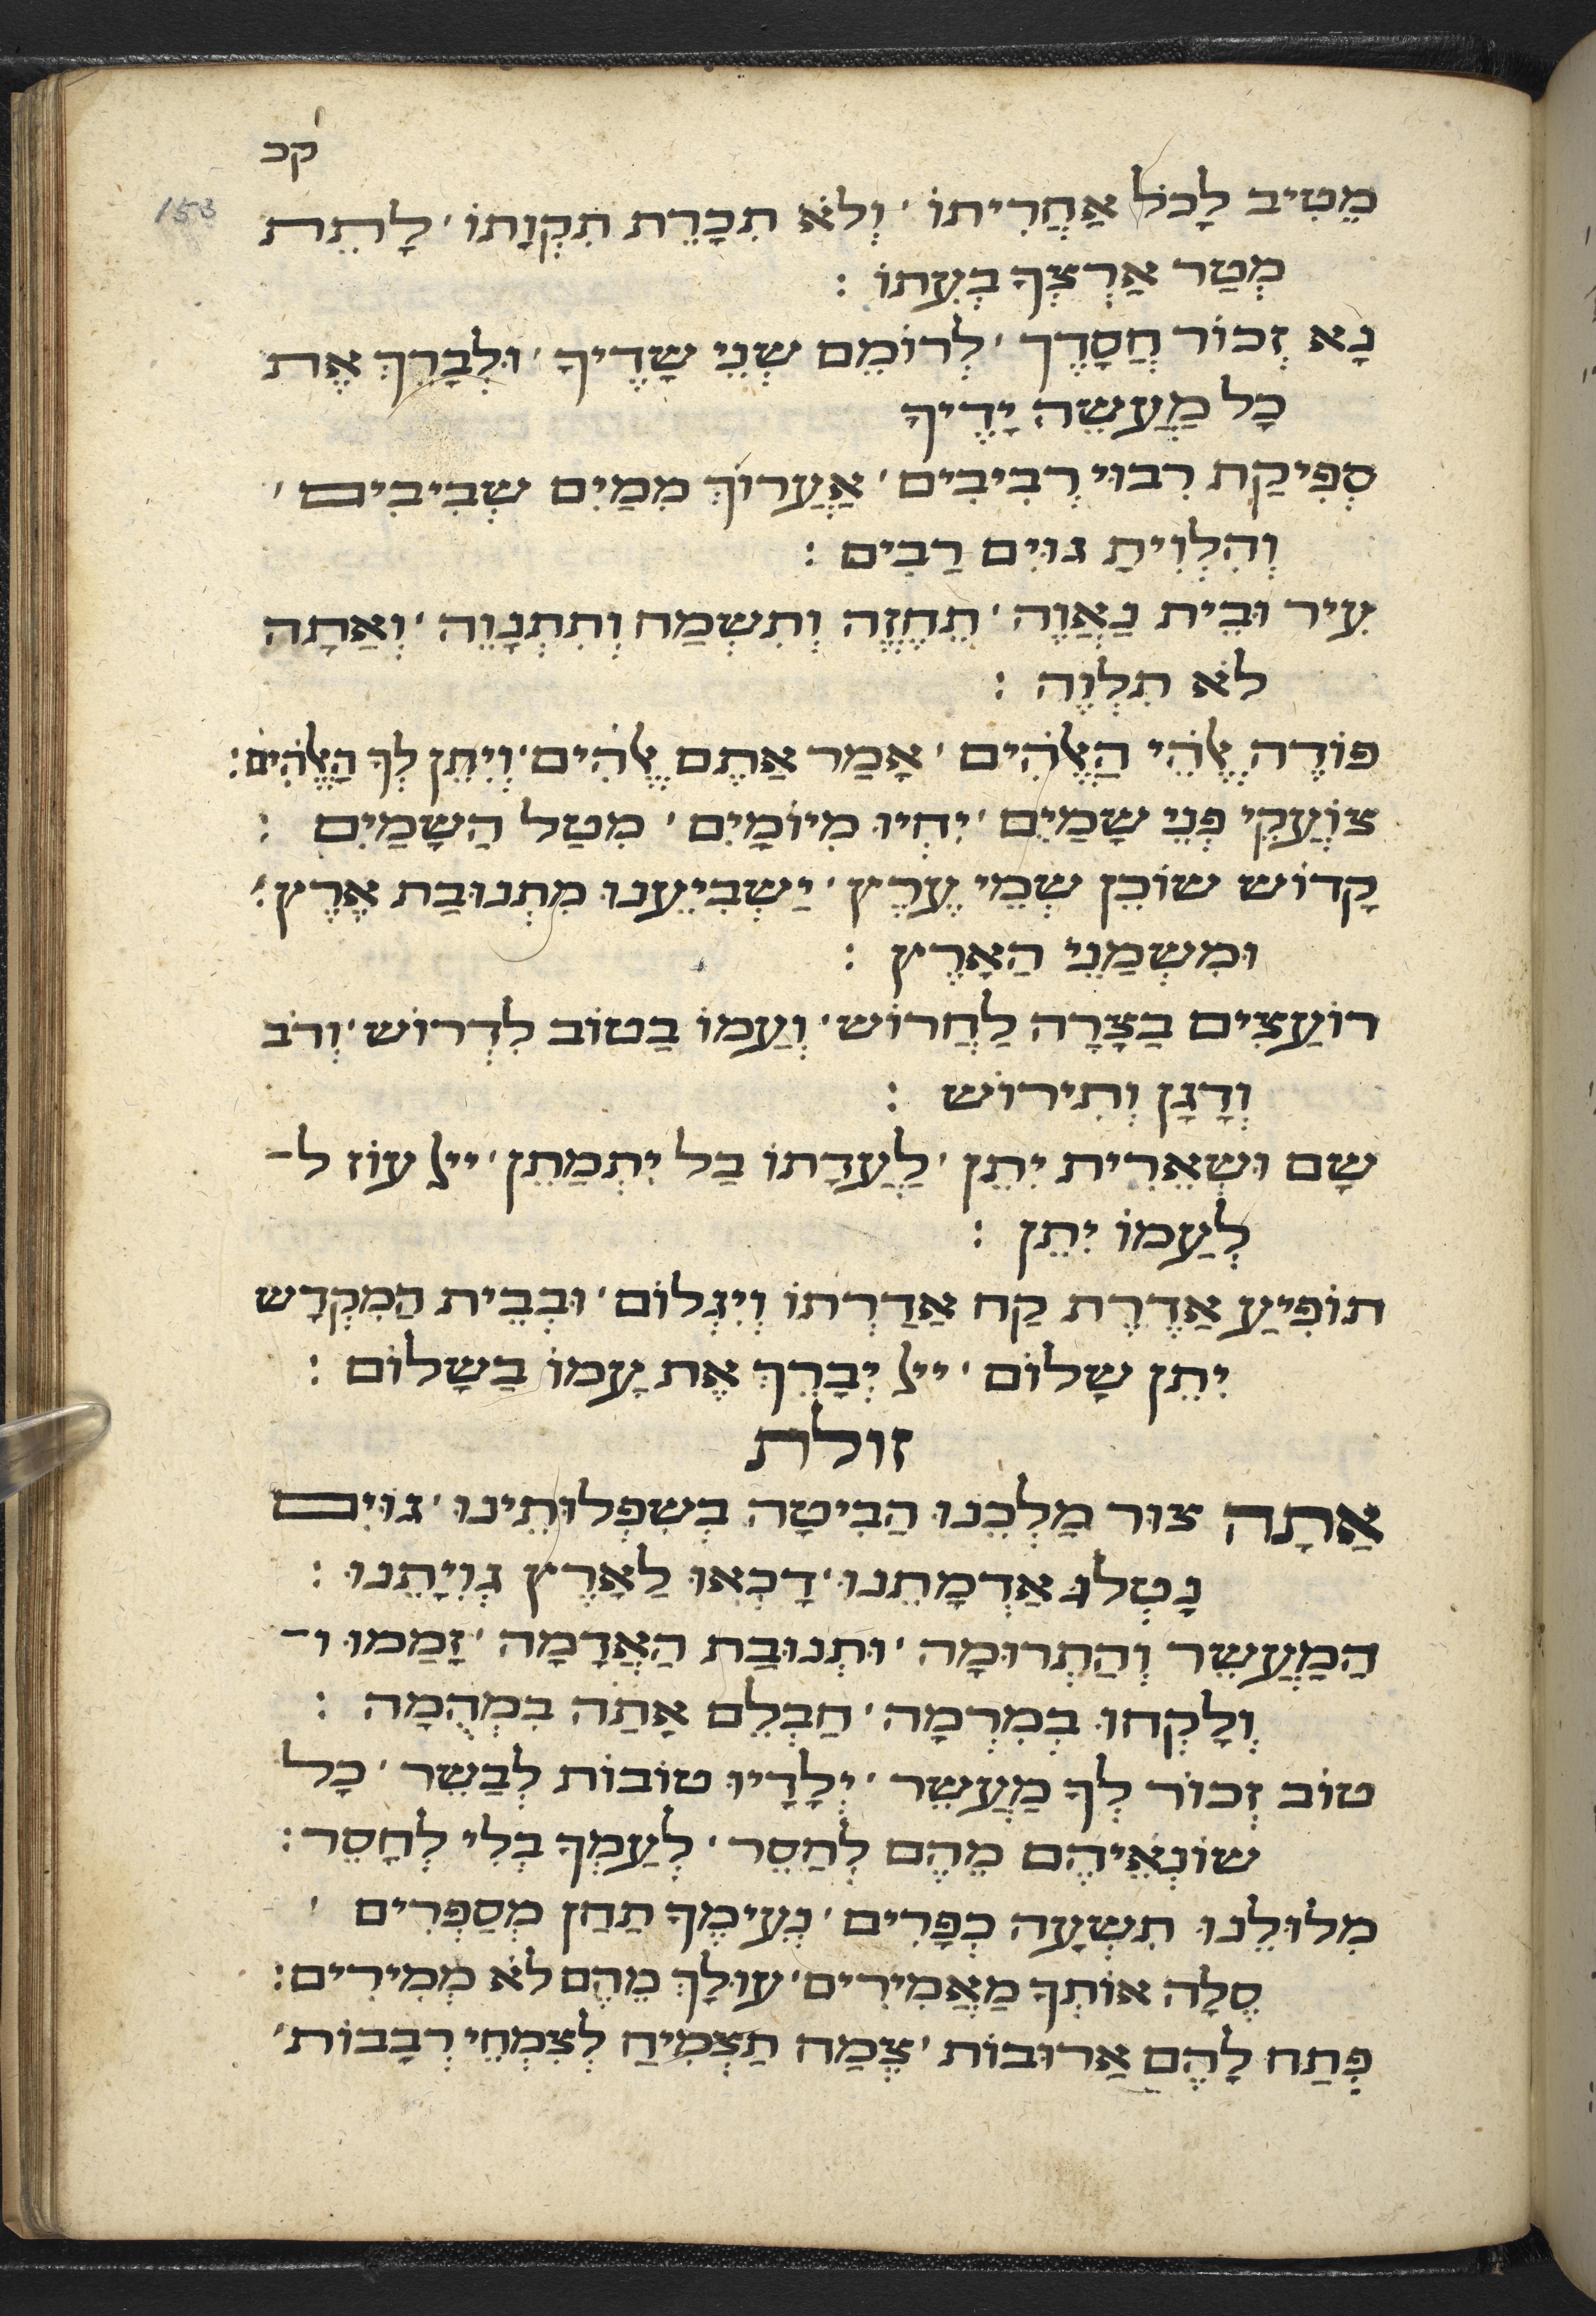 קכ
153
מֵטִיב לָכֹל אַחֲרִיתוֹ ׳ וְלֹא תִכָרֵת תִקְוָתוֹ ׳ לָתֵת
מְטַר אַרְצְךָ בְעִתוֹ :
נָא זְכוֹר חֲסָדֶך ׳ לְרוֹמֵם שְׁנֵי שָׁדֶיךָ ׳ וּלְבָרֵךְ אֶת
כָל מַעֲשֵׂה יָדֶיךָ
סְפִיקַת רִבוּי רְבִיבִים ׳ אֲעָרוֹךְ מִמַיִם שְׁבִיבִים ׳
וְהִלְוִיתָ גוֹיִם רַבִים :
עִיר וּבֵית נַאֲוֶה ׳ תֶחֱזֶה וְתִשְׂמַח וְתִתְנָוֶה ׳ וְאַתָה
לֹא תִלְוֶה :
פּוֹדֶה אֱלֹהֵי הָאֱלֹהִים ׳ אָמַר אַתֶם אֱלֹהִים ׳ וְיִתֵן לְךָ הָאֱלֹהִים :
צוֹעֲקֵי פְנֵי שָׁמַיִם ׳ יִחְיוּ מִיוֹמָיִם ׳ מִטַל הַשָׁמַיִם :
קָדוֹשׁ שׁוֹכֵן שְׁמֵי עֶרֶץ ׳ יַשְׂבִיעֵנוּ מִתְנוּבַת אֶרֶץ ׳
וּמִשְׁמַנֵי הָאָרֶץ :
רוֹעֲצִים בַצָרָה לַחֲרוֹשׁ ׳ וְעַמוֹ בַטוֹב לִדְרוֹשׁ ׳ וְרֹב
וְדָגָן וְתִירוֹשׁ :
שֵׁם וּשְׁאֵרִית יִתֵן ׳ לַעֲדָתוֹ בַל יִתְמַתֵן ׳ ייל עוֹז ל־
לְעַמוֹ יִתֵן :
תוֹפִיעַ אַדֶרֶת קַח אַדַרְתוֹ וְיִגְלוֹם ׳ וּבְבֵית הַמִקְדָשׁ
יִתֵן שָׁלוֹם ׳ ייל יְבָרֵךְ אֶת עַמוֹ בַשָׁלוֹם :
זולת
אַתָה צוּר מַלְכֵנוּ הַבִיטָה בְשִׁפְלוּתֵינוּ ׳ גוֹיִם
נָטְלוּ אַדְמָתֵנוּ ׳ דָכְאוּ לָאָרֶץ גְוִיָתֵנוּ :
הַמַעֲשֵׂר וְהַתְרוּמָה ׳ וּתְנוּבַת הָאֲדָמָה ׳ זָמַמוּ ו־
וְלָקְחוּ בְמִרְמָה ׳ חַבְלֵם אָתַה בִמְהֻמָה :
טוֹב זְכוֹר לְךָ מַעֲשֵׂר ׳ יְלָדָיו טוֹבוֹת לְבַשֵׂר ׳ כָל
שׂוֹנְאֵיהֶם מֵהֶם לְחַסֵר ׳ לְעַמְךָ בְלִי לְחָסֵר :
מִלוּלֵנוּ תִשְׁעָה כְפָרִים ׳ נְעִימֶךָ תַחַן מְסַפְרִים ׳
סֶלָה אוֹתְךָ מַאֲמִירִים ׳ עוּלָךְ מֵהֶם לֹא מְמִירִים :
פְתַח לָהֶם אַרוּבוֹת ׳ צֶמַח תַצְמִיחַ לְצִמְחֵי רְבָבוֹת ׳